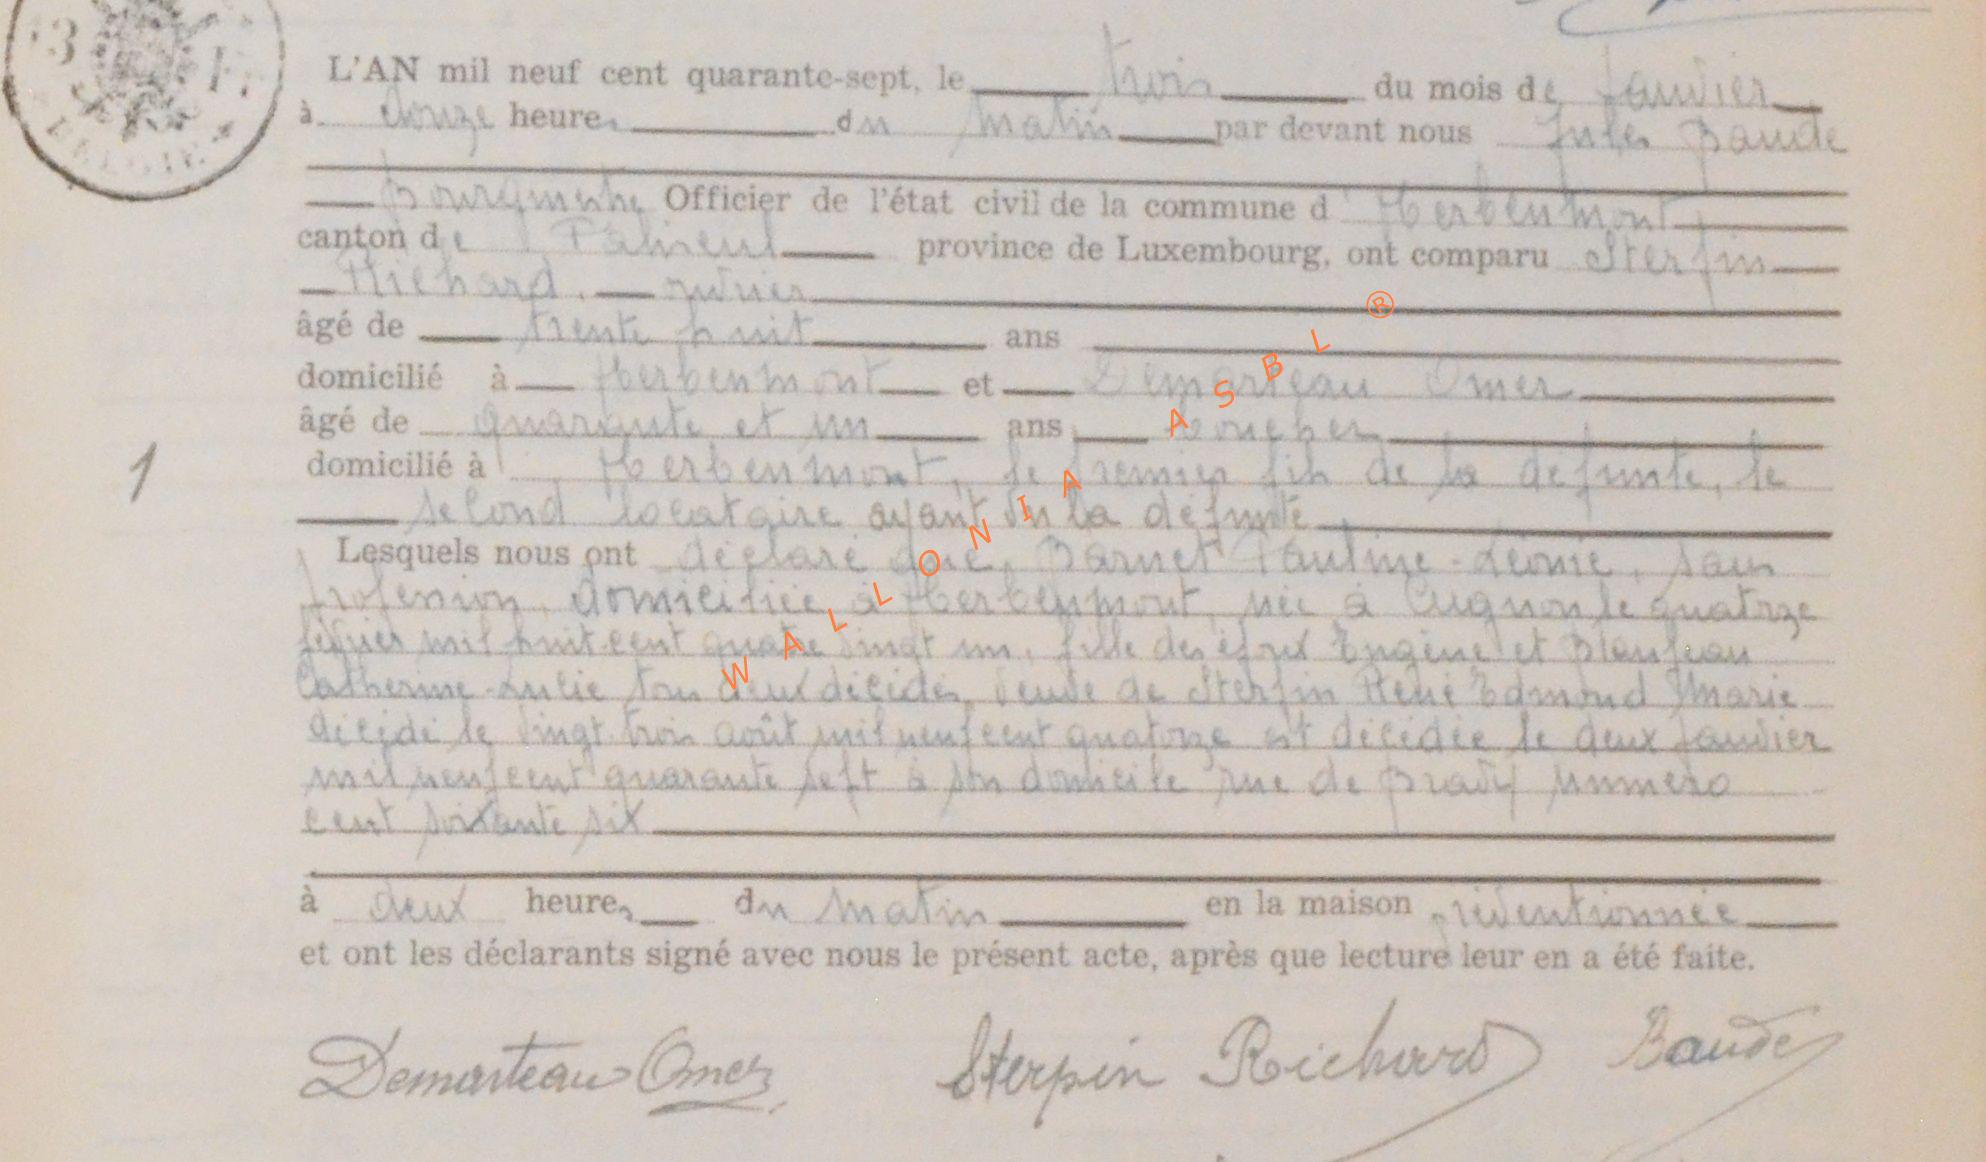 L'AN mil neuf cent quarante-sept, le trois du mois de Janvier
à douze heures du matin par devant nous Jules Baude
Bourgmestre Officier de l'état civil de la commune d'Herbeumont
canton de Paliseul province de Luxembourg, ont comparu Sterpin
Richard, ouvrier
âgé de trente huit ans
domicilié à Herbeumont et Demarteau Omer
âgé de quarante et un ans
domicilié à Herbeumont, le premier fils de la défunte, le
second locataire ayant vu la défunte
Lesquels nous ont déclaré que Barnet Pauline-Léonie, sans
profession, domiciliée à Herbeumont, née à Cugnon le quatorze
février mil huit cent quatre vingt un, fille des époux Eugène et Blanjean
Catherine-Lucie tous deux décédés, veuve de Sterpin René Edmond Marie
décédé le vingt trois août mil neuf cent quatorze est décédée le deux Janvier
mil neuf cent quarante sept à son domicile rue de Bravy numéro
cent soixante six
à deux heures du matin en la maison préventionnée
et ont les déclarants signé avec nous le présent acte, après que lecture leur en a été faite.
1
Demarteau Omer Sterpin Richard Baude
WALLONIA ASBL ®